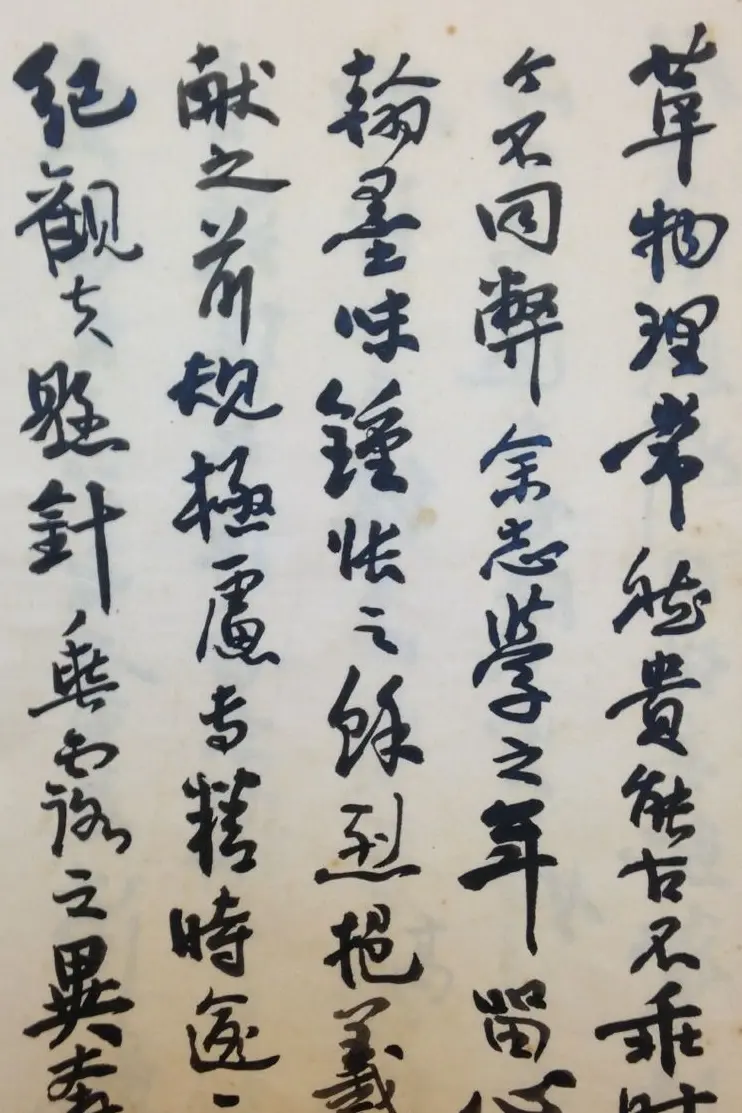 革物理常然貴能古不乖時
今不同弊余志學之年留心
翰墨味鍾張之餘烈挹羲
献之前規極慮專精時逾
紀觀夫懸針垂露之異奔